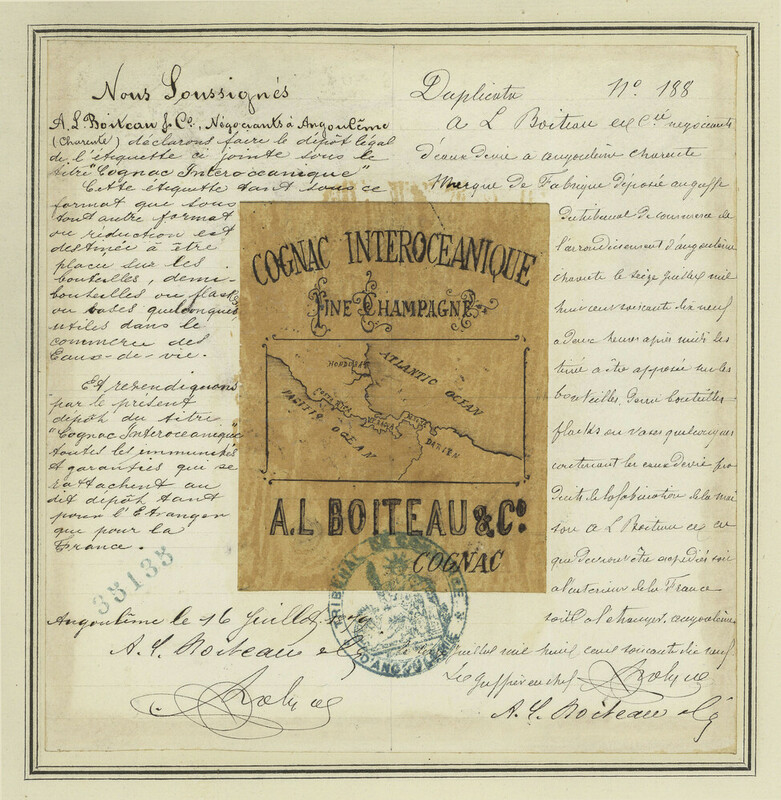 Nous Soussignés
A. L. Boiteau & Co, Négociants à Angoulême
(Charente) déclarons faire le dépôt légal
de l'étiquette ci jointe sous le
titre "Cognac Interocéanique"
Cette étiquette tant sous ce
format que sous
tout autre format
ou réduction est
destinée à être
placée sur les
bouteilles, demi-
bouteilles ou flasks
ou vases quelconques
utiles dans le
commerce des
Eaux-de-vie.
Et revendiquons
par le présent
dépôt du titre
"Cognac Interocéanique"
toutes les immunités
et garanties qui se
rattachent au
dit dépôt tant
pour l'Etranger
que pour la
France.
35133
Angoulême le 16 Juillet 1879
A. L. Boiteau & Co
COGNAC INTEROCEANIQUE
FINE CHAMPAGNE
HONDURAS
ATLANTIC OCEAN
PACIFIC OCEAN
COSTA RICA
DARIEN
A.L BOITEAU & Co.
COGNAC
TRIBUNAL DE COMMERCE
D'ANGOULEME
Duplicata No 188
A L Boiteau et Cie négociants
d'eaux de vie à angoulême charente
Marque de Fabrique déposée au greffe
du tribunal de commerce de
l'arrondissement d'angoulême
charente le seize juillet mil
huit cent soixante dix neuf
à deux heures après midi des
tiné à être apposée sur les
bouteilles, demi bouteilles
flasks ou vases quelconques
contenant les eaux de vie pro
duits de la fabrication de la mai
son A L Boiteau et Cie
que devront être expédiés soit
à l'intérieur de la France
soit à l'étranger. angoulême
juillet mil huit cent soixante dix neuf
Le greffier en chef
A. L. Boiteau & Co